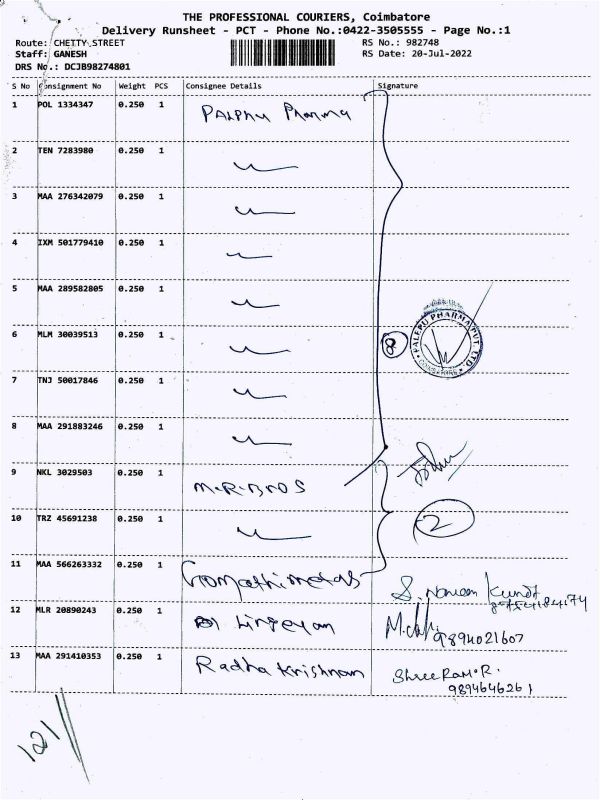 THE PROFESSIONAL COURIERS, Coimbatore
Delivery Runsheet - PCT - Phone No.:0422-3505555 - Page No.:1
Route: CHETTY STREET RS No.: 982748
Staff: GANESH RS Date: 20-Jul-2022
DRS No.: DCJB98274801
S No Consignment No Weight PCS Consignee Details Signature
1 POL 1334347 0.250 1 Palphu Pharma
2 TEN 7283980 0.250 1
3 MAA 276342079 0.250 1
4 IXM 501779410 0.250 1
5 MAA 289582805 0.250 1
PALEPU PHARMA PVT. LTD.
COIMBATORE
6 MLM 30039513 0.250 1 8
7 TNJ 50017846 0.250 1
8 MAA 291883246 0.250 1
9 NKL 3029503 0.250 1 M.R.BROS
10 TRZ 45691238 0.250 1 2
11 MAA 566263332 0.250 1 Gomathi metals S. Naveen Kumar
12 MLR 20890243 0.250 1 Lingeyan 9894021607
13 MAA 291410353 0.250 1 Radha Krishnan Shree Ram.R.
9894646261
121/